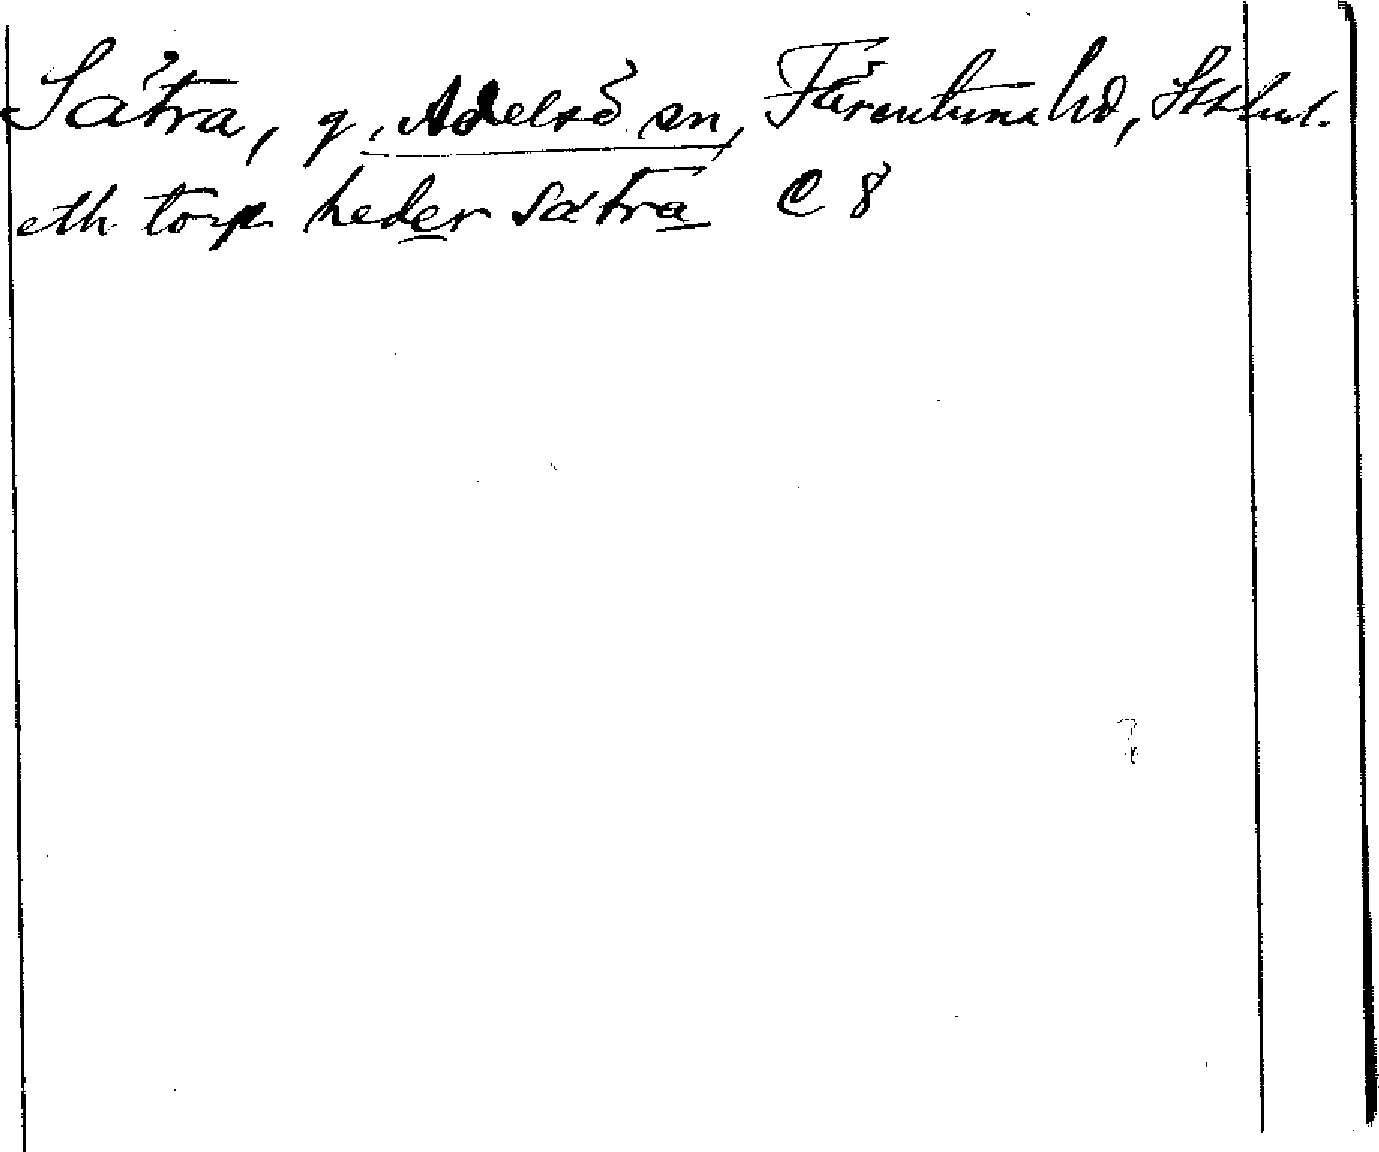 Sätra, g, Adelsö sn, Färentuna hd, Sthlms l.
eth torp heder Sätra C 8